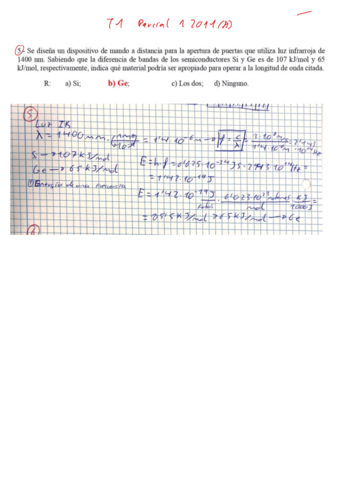 T1 Parcial 1 2011(A)
5. Se diseña un dispositivo de mando a distancia para la apertura de puertas que utiliza luz infrarroja de
1400 nm. Sabiendo que la diferencia de bandas de los semiconductores Si y Ge es de 107 kJ/mol y 65
kJ/mol, respectivamente, indica qué material podría ser apropiado para operar a la longitud de onda citada.
R: a) Si; b) Ge; c) Los dos; d) Ninguno.
5
Luz IR
λ = 1400 nm · = 1'4·10⁻⁶ m → f = c/λ = 3·10⁸ m/s / 1'4·10⁻⁶ m = 2'143·10¹⁴ Hz
Si → 107 kJ/mol
Ge → 65 kJ/mol
E = h·f = 6'625·10⁻³⁴ Js · 2'143·10¹⁴ Hz =
= 1'42·10⁻¹⁹ J
E = 1'42·10⁻¹⁹ J · 6'023·10²³ / mol · kJ / 1000J =
= 85'5 kJ/mol > 65 kJ/mol → Ge
6